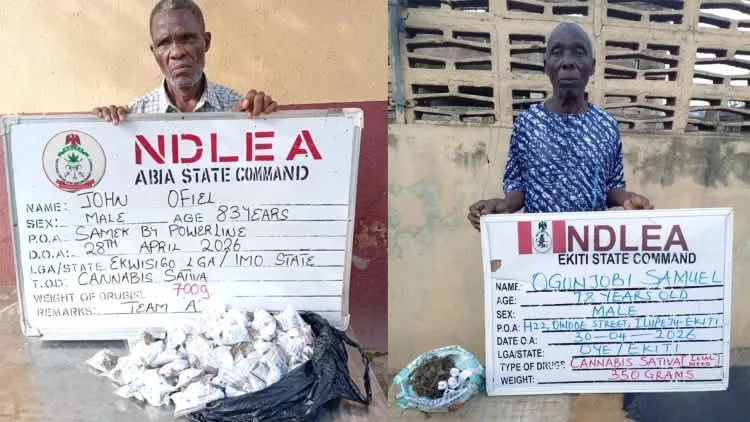 NDLEA
ABIA STATE COMMAND
NAME: JOHN OFIEL
SEX: MALE AGE 83 YEARS
P.O.A: SAMEK BY POWERLINE
D.O.A: 28TH APRIL 2026
LGA/STATE EKWISIGO LGA/ IMO STATE
T.O.D: CANNABIS SATIVA
WEIGHT OF DRUG(S) 700g
REMARKS: TEAM A
NDLEA
EKITI STATE COMMAND
NAME: OGUNJOBI SAMUEL
AGE: 78 YEARS OLD
SEX: MALE
P.O.A: H22, OWODE STREET, ILUPEJU-EKITI
DATE O.A: 30-04-2026
LGA/STATE: OYE/EKITI
TYPE OF DRUGS: CANNABIS SATIVA [LOCAL
WEIGHT: 350 GRAMS